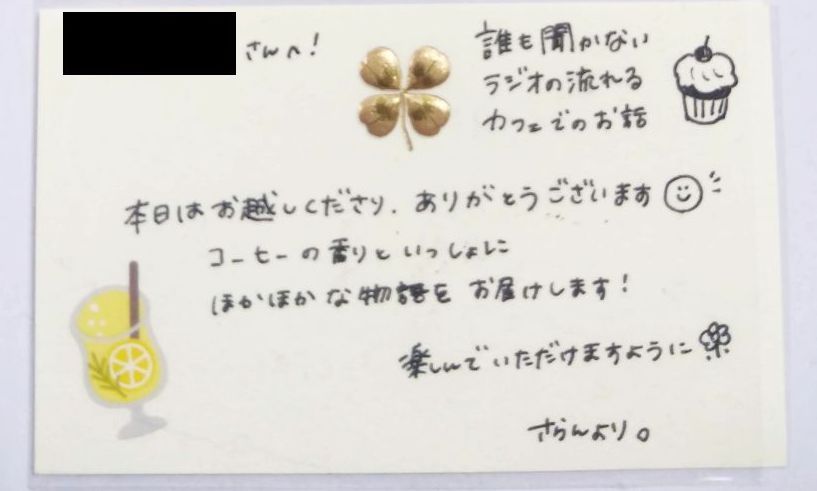 さんへ!
誰も聞かない
ラジオの流れる
カフェでのお話
本日はお越しくださり、ありがとうございます
コーヒーの香りといっしょに
ほかほかな物語をお届けします!
楽しんでいただけますように
さらんより。